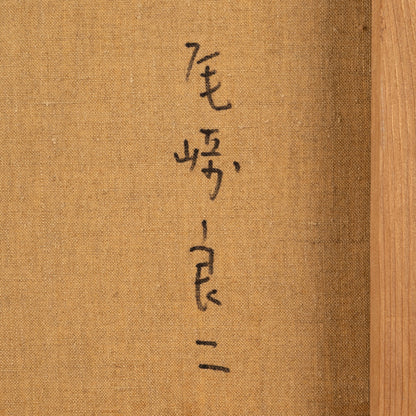 尾崎良二